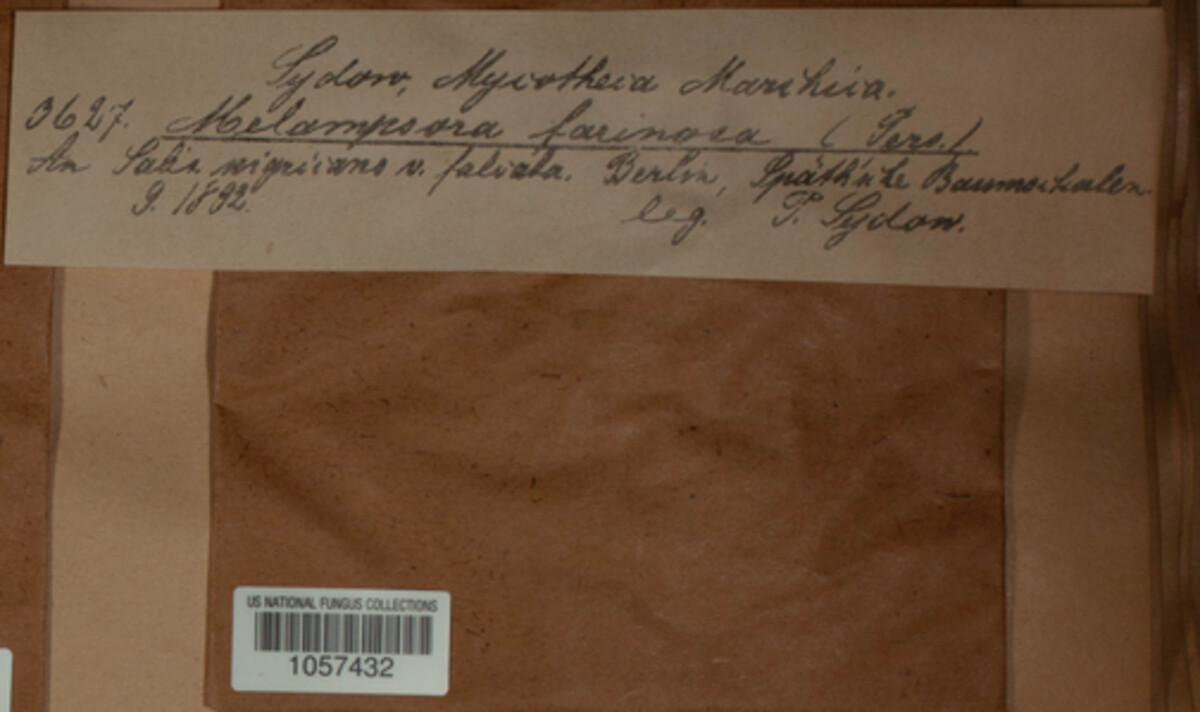 Sydow, Mycotheca Marchica.
3627. Melampsora farinosa (Pers.)
An Salix nigricans v. falcata. Berlin, Späth'sche Baumschulen.
9. 1892. leg. P. Sydow.
US NATIONAL FUNGUS COLLECTIONS
1057432